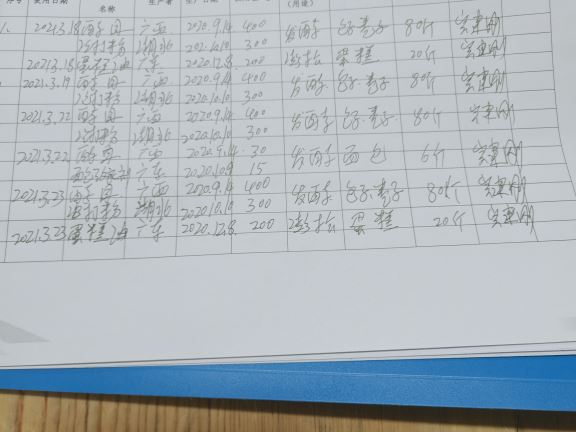 序号 使用日期 名称 生产者 生产日期 (用途)
1. 2021.3.18 酵母 广西 2020.9.14 400 发酵 包子.卷子 80斤
泡打粉 湖北 2020.10.10 300
2021.3.18 蛋糕油 广东 2020.12.8 200 蓬松 蛋糕 20斤
2021.3.19 酵母 广西 2020.9.14 400 发酵 包子.卷子 80斤
泡打粉 湖北 2020.10.10 300
2021.3.22 酵母 广西 2020.9.14 400 发酵 包子.卷子 80斤
泡打粉 湖北 2020.10.10 300
2021.3.22 酵母 广西 2020.9.14 30 发酵 面包 6斤
广东 2020.10.9 15
2021.3.23 酵母 广西 2020.9.14 400 发酵 包子.卷子 80斤
泡打粉 湖北 2020.10.10 300
2021.3.23 蛋糕油 广东 2020.12.8 200 蓬松 蛋糕 20斤